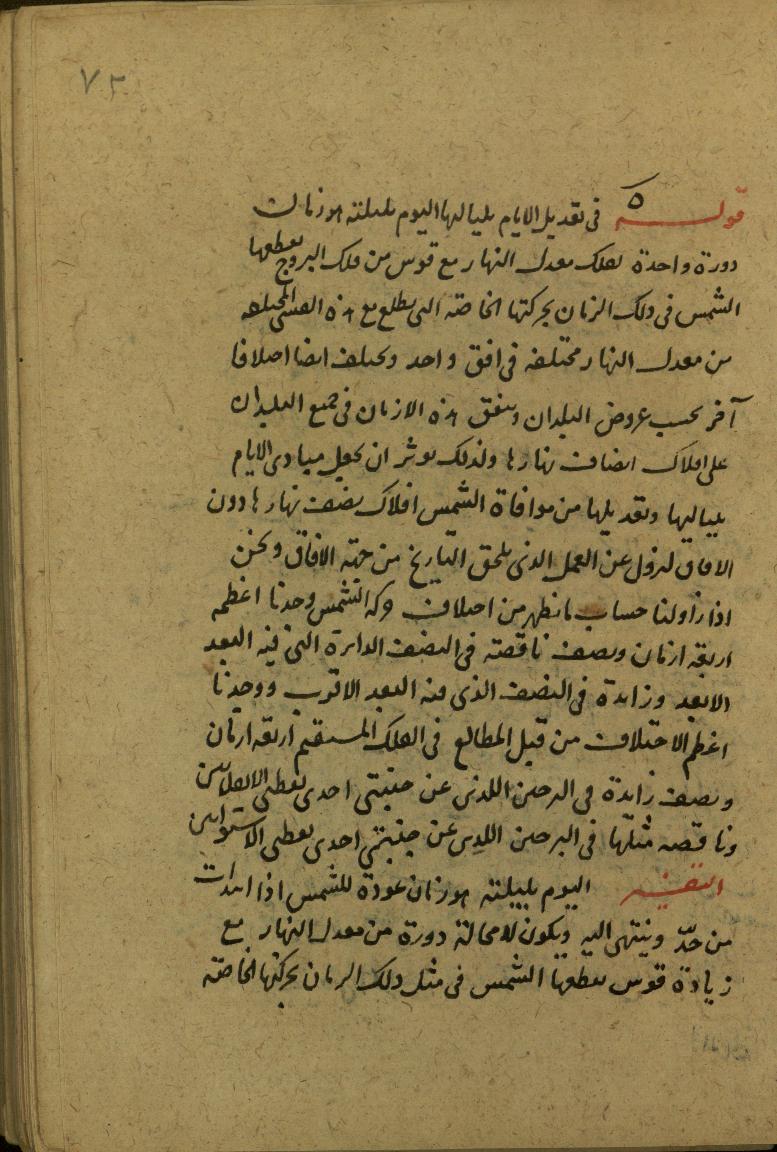 ٧٢
قوله ٥ في تعديل الايام بلياليها اليوم بليلته هو زمان
دورة واحدة لفلك معدل النهار مع قوس من فلك البروج يقطعها
الشمس في ذلك الزمان بحركتها الخاصة التي يطلع مع هذه القسي المختلفة
من معدل النهار مختلفة في افق واحد ويختلف ايضا اختلافا
آخر بحسب عروض البلدان ويتفق هذه الازمان في جميع البلدان
على افلاك انصاف نهارها ولذلك نوثر ان نجعل مبادي الايام
بلياليها وتعديلها من موافاة الشمس افلاك نصف نهارها دون
الافاق ليزول عن العمل الذي يلحق التاريخ من جهة الافاق ونحن
اذا زاولنا حساب ما يظهر من اختلاف حركة الشمس وجدنا اعظمه
اربعة ازمان ونصف ناقصة في النصف الدائرة التي فيه البعد
الابعد وزايدة في النصف الذي فيه البعد الاقرب ووجدنا
اعظم الاختلاف من قبل المطالع في الفلك المستقيم اربعة ازمان
ونصف زايدة في البرجين اللذين عن جنبتي احدى نقطتي الانقلابين
وناقصه مثلها في البرجين اللذين عن جنبتي احدى نقطتي الاستوايين
التفسير اليوم بليلته هو زمان عودة للشمس اذا ابتدات
من حدّ وينتهى اليه ويكون لامحالة دورة من معدل النهار مع
زيادة قوس يقطعها الشمس في مثل ذلك الزمان بحركتها الخاصة